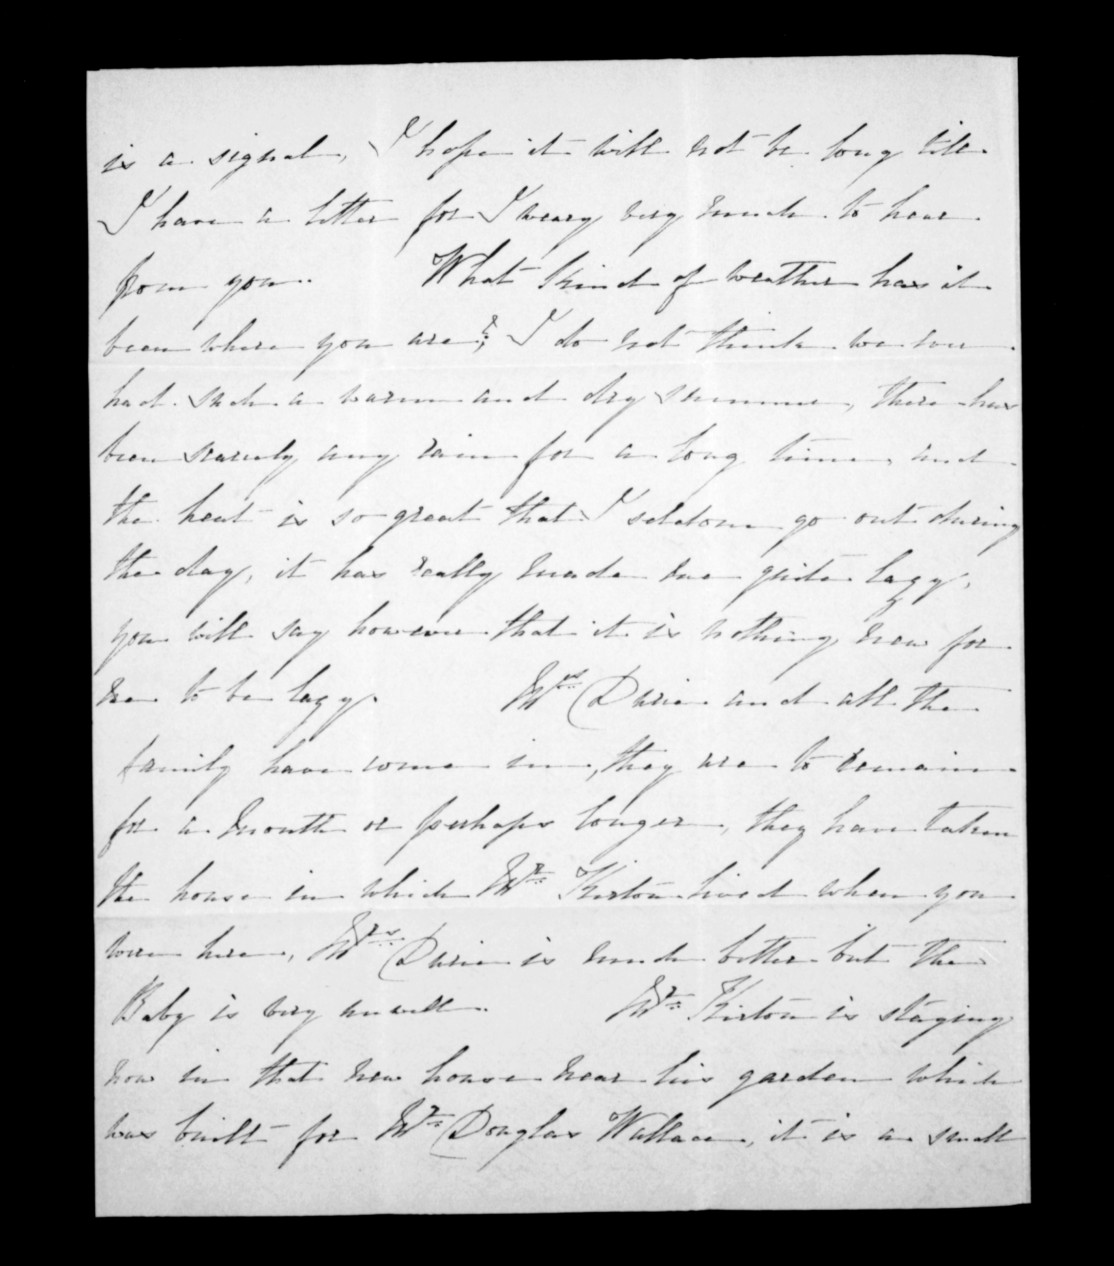 is a signal, I hope it will not be long till
I have a letter for I weary very much to hear
from you. What kind of weather has it
been where you are?, I do not think we ever
had such a warm and dry summer, there has
been scarcely any rain for a long time, and
the heat is so great that I seldom go out during
the day, it has really made me quite lazy,
you will say however that it is nothing new for
me to be lazy. Mrs and all the
family have come in, they are to remain
for a month or perhaps longer, they have taken
the house in which Mr. Kirton lived when you
were here, Mrs is much better but the
Baby is very unwell. Mr. Kirton is staying
now in that new house near his garden which
was built for Mr. Douglas Wallace, it is a small